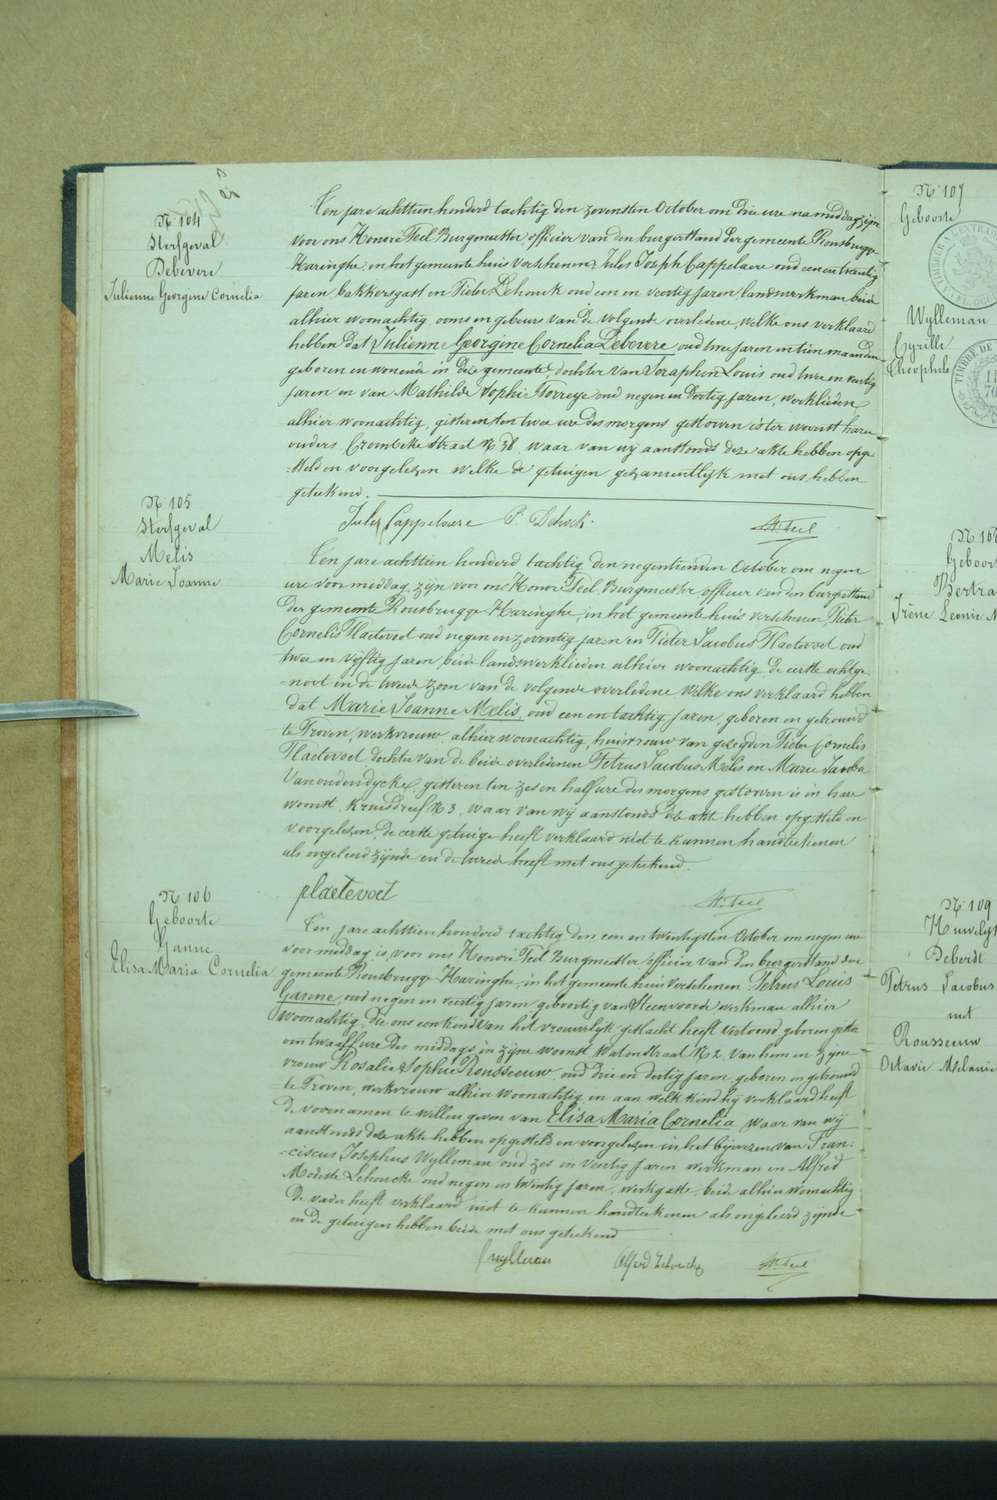 N° 104
Sterfgeval
Debevere
Julienne Georgine Cornelia
Een jare achttien honderd tachtig den zevensten October om drie ure namiddag zijn
voor ons Honoré Feel Burgmeester officier van den burgerstand der gemeente Rousbrugge
Haringhe, in het gemeente huis verschenen Jules Joseph Cappelaere oud een en twintig
jaren bakkersgast en Pieter Lehouck oud een en veertig jaren landswerkman beide
alhier woonachtig, ooms en gebeurs van de volgende overledene, welke ons verklaard
hebben dat Julienne Georgine Cornelia Debevere, oud twee jaren en tien maanden
geboren en wonende in deze gemeente dochter van Seraphin Louis oud twee en veertig
jaren en van Mathilde Sophie Torreye oud negen en dertig jaren, werklieden
alhier woonachtig, gisteren ten twee ure des morgens gestorven is ter woonst harer
ouders Crombeke straat N° 38, waar van wij aanstonds deze akte hebben opge-
steld en voorgelezen welke de getuigen gezamentlijk met ons hebben
geteekend.
Jules Cappelaere P. Lehouck H. Feel
N° 105
Sterfgeval
Melis
Marie Joanne
Een jare achttien honderd tachtig den negentienden October om negen
ure voormiddag, zijn voor ons Honoré Feel Burgmeester officier van den burgerstand
der gemeente Rousbrugge Haringhe, in het gemeente huis verschenen Pieter
Cornelis Plaetevoet oud negen en zeventig jaren en Pieter Jacobus Plaetevoet oud
twee en vijftig jaren, beide landswerklieden alhier woonachtig de eerste echtge-
noot en de tweede zoon van de volgende overledene welke ons verklaard hebben
dat Marie Joanne Melis, oud een en tachtig jaren, geboren en getrouwd
te Proven, werkvrouw, alhier woonachtig, huisvrouw van gezegden Pieter Cornelis
Plaetevoet dochter van de beide overledenen Petrus Jacobus Melis en Marie Jacoba
Vanoudendycke, gisteren ten zes en half ure des morgens gestorven is in hare
woonst, Kruisdreef N° 3, waar van wij aanstonds deze akt hebben opgesteld en
voorgelezen, de eerste getuige heeft verklaard niet te kunnen handteekenen
als ongeleerd zijnde en de tweede heeft met ons geteekend.
plaetevoet H. Feel
N° 106
Geboorte
Ganne
Elisa Maria Cornelia
Een jare achttien honderd tachtig den een en twintigsten October om negen ure
voormiddag is voor ons Honoré Feel Burgmeester officier van den burgerstand der
gemeente Rousbrugge-Haringhe, in het gemeente huis verschenen Petrus Louis
Ganne, oud negen en veertig jaren geboortig van Steenvoorde werkman alhier
woonachtig, die ons een kind van het vrouwelijk geslacht heeft vertoond, geboren gister
om twaalf ure des middags in zijne woonst Watoustraat N° 2, van hem en zijne
vrouw Rosalie Sophie Rousseeuw, oud drie en dertig jaren geboren en getrouwd
te Proven, werkvrouw alhier woonachtig, en aan welk kind hij verklaard heeft
de voornamen te willen geven van Elisa Maria Cornelia, waar van wij
aanstonds deze akte hebben opgesteld en voorgelezen in het bijwezen van Fran-
ciscus Josephus Wylleman oud zes en veertig jaren werkman en Alfred
Modeste Lehoucke oud negen en twintig jaren, beide alhier woonachtig
De vader heeft verklaard niet te kunnen handteekenen als ongeleerd zijnde
en de getuigen hebben beide met ons geteekend
f wylleman Alfred Lehoucke H. Feel
N° 107
Geboorte
Wylleman
Cyrille
Theophile
Geboort
Bertra
Irène
N° 109
Huwelijk
Deberdt
Petrus Jacobus
met
Rousseeuw
Octavie Melanie